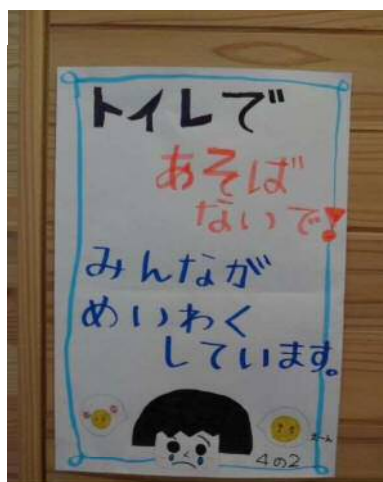 トイレで
あそば
ないで!
みんなが
めいわく
しています。
4の2